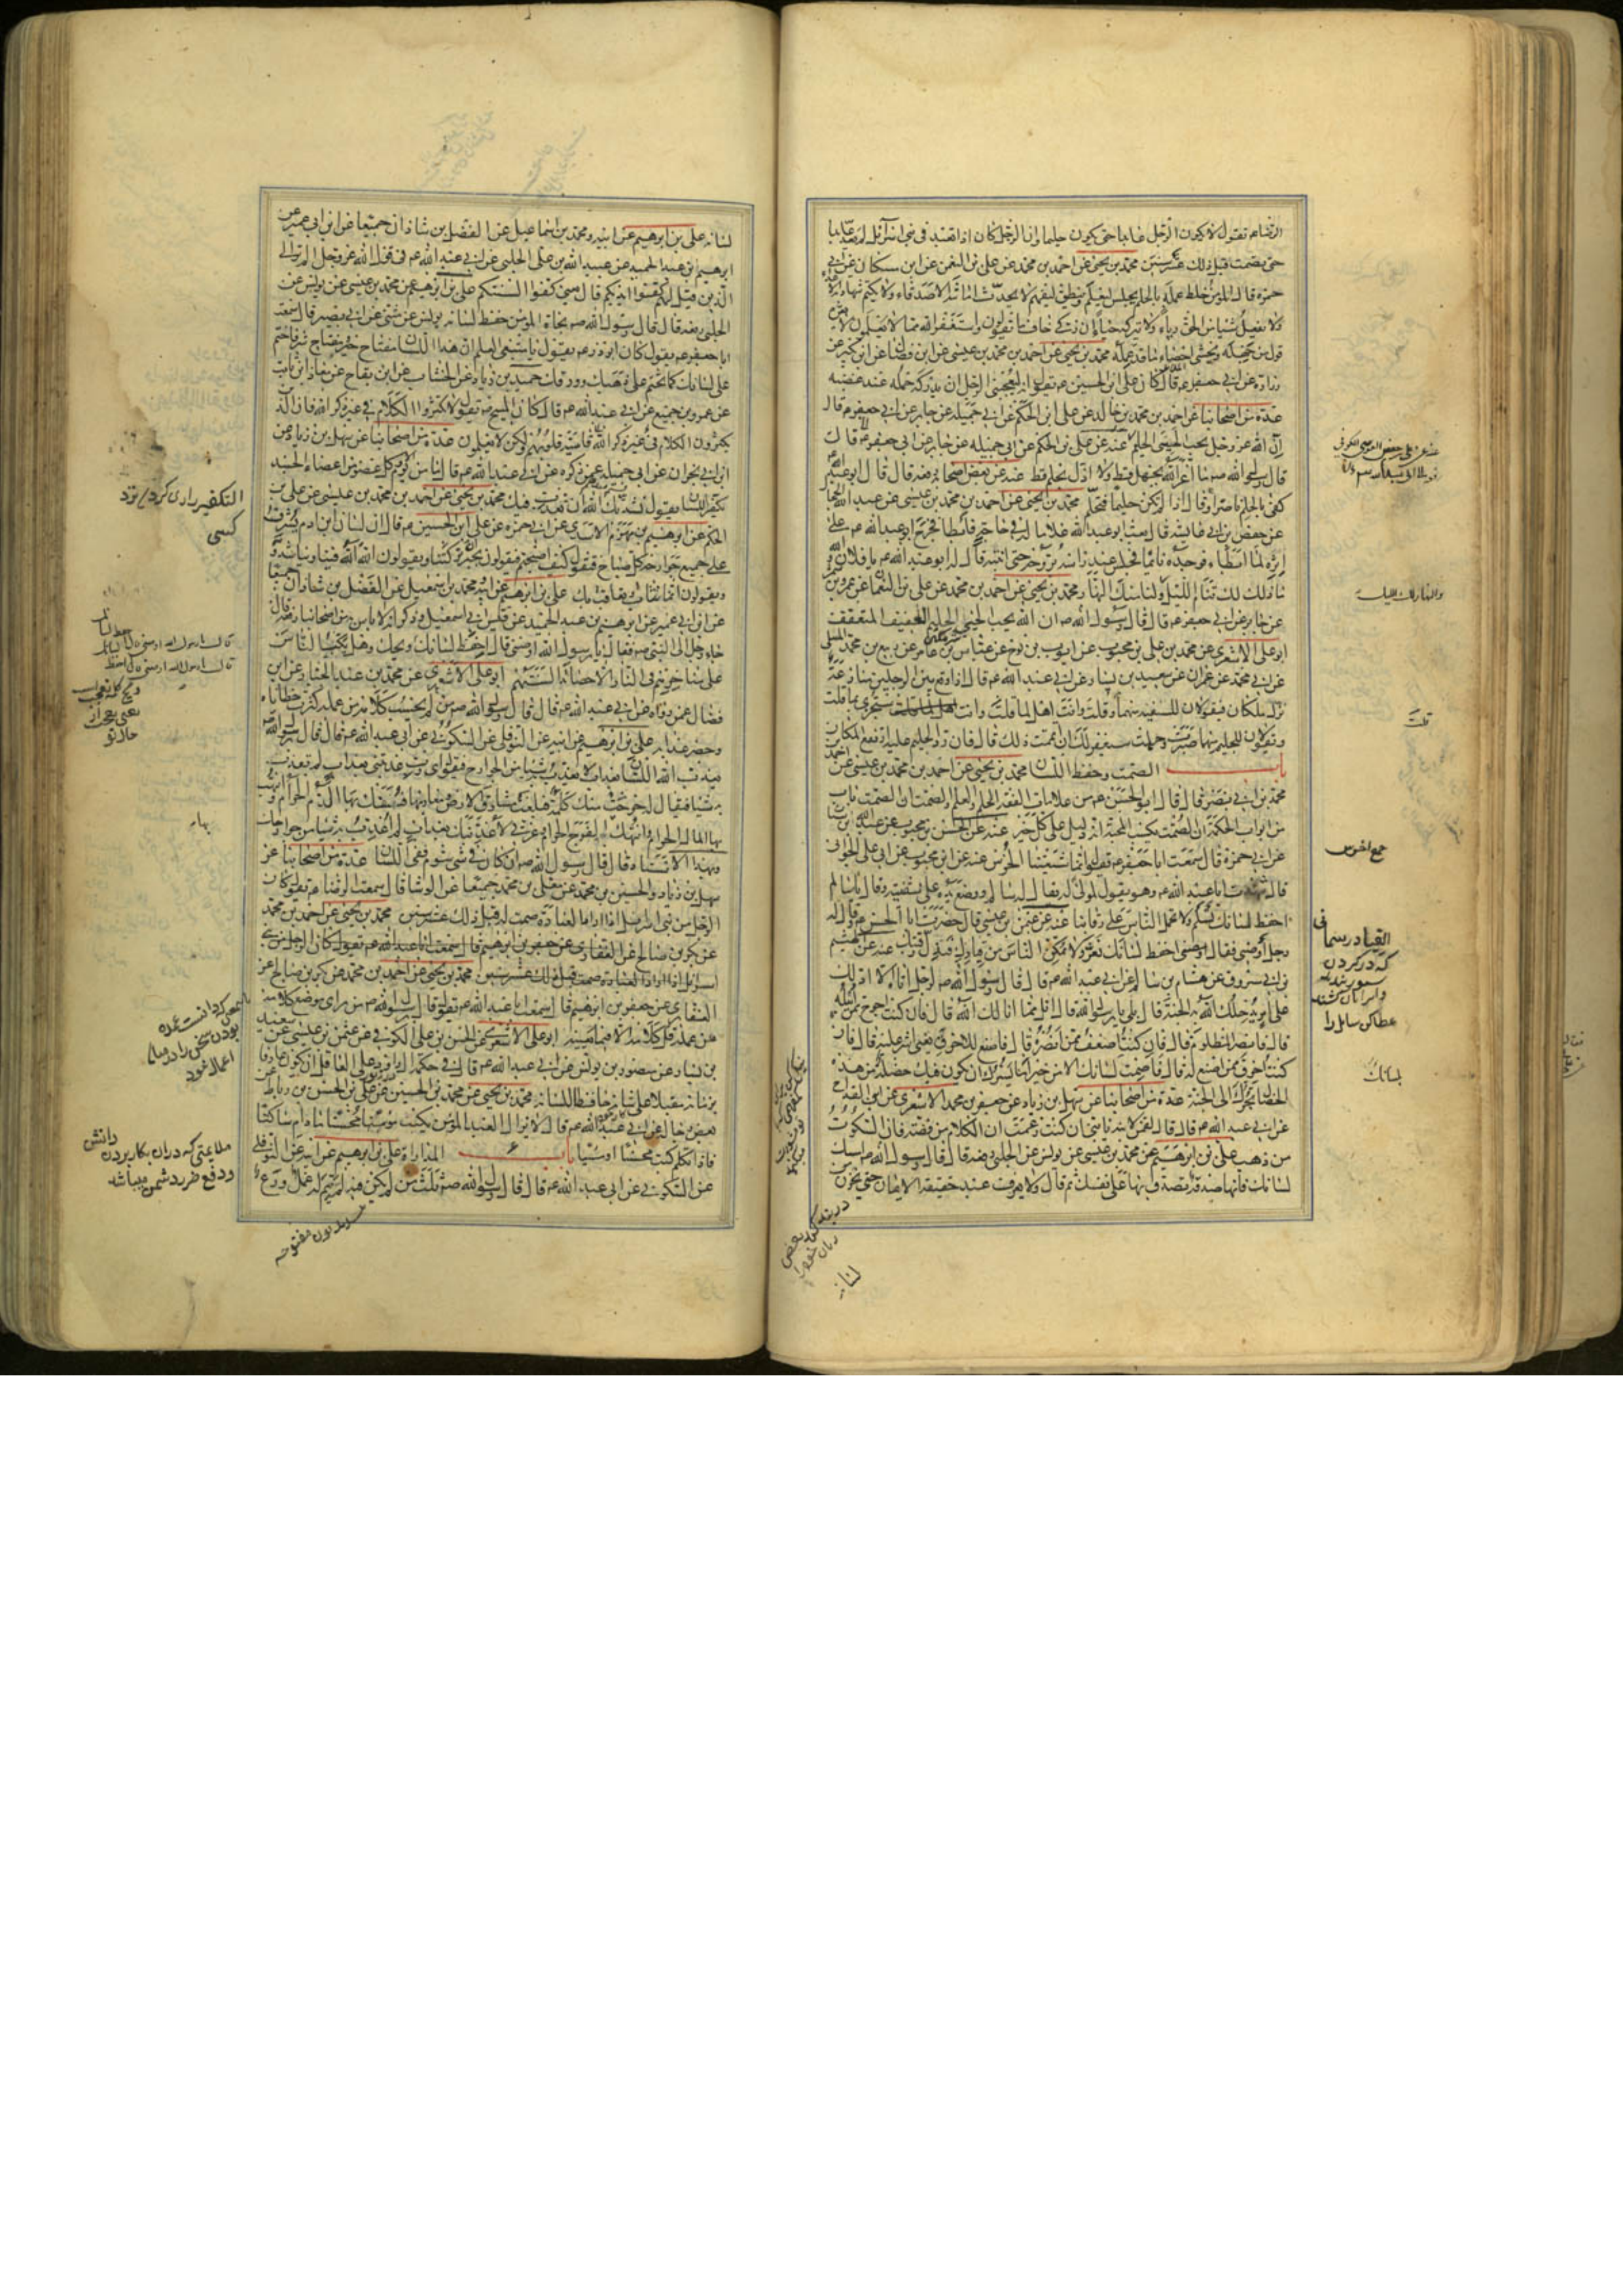 الرضا ع يقول لا يكون الرجل عابدا حتى يكون حليما وان الرجل كان اذا تعبد في بني اسرائيل لم يعد عابدا
حتى يصمت قبل ذلك عشر سنين محمد بن يحيى عن احمد بن محمد عن علي بن النعمن عن ابن مسكان عن ابي
حمزة قال المؤمن خلط عمله بالحلم يجلس ليعلم وينطق ليفهم لا يحدث امانته الاصدقاء ولا يكتم شهادته الاعداء
ولا يفعل شيئا من الحق رياء ولا يتركه حياء ان زكي خاف ما يقولون واستغفر الله مما لا يعلمون لا يغره
قول من جهله ويخشى احصاء ما قد عمله محمد بن يحيى عن احمد بن محمد بن عيسى عن ابن فضال عن ابن بكير عن
زرارة عن ابي جعفر ع قال كان علي بن الحسين ع يقول انه ليعجبني الرجل ان يدركه حلمه عند غضبه
عدة من اصحابنا عن احمد بن محمد بن خالد عن علي بن الحكم عن ابي جميلة عن جابر عن ابي جعفر ع قال
ان الله عز وجل يحب الحيي الحليم عنه عن علي بن الحكم عن ابي جميلة عن جابر عن ابي جعفر ع قال
قال رسول الله ص ما اعز الله بجهل قط ولا اذل بحلم قط عنه عن بعض اصحابه رفعه قال قال ابو عبد الله ع
كفى بالحلم ناصرا وقال اذا لم تكن حليما فتحلم محمد بن يحيى عن احمد بن محمد بن عيسى عن عبد الله الحجال
عن حفص بن ابي عائشة قال بعث ابو عبد الله غلاما له في حاجة فابطأ فخرج ابو عبد الله ع على
اثره لما ابطأ فوجده نائما فجلس عند رأسه يروحه حتى انتبه قال له ابو عبد الله ع يا فلان والله
ما ذلك لك تنام الليل ولنا منك النهار محمد بن يحيى عن احمد بن محمد عن علي بن النعمان عن عمرو بن شمر
عن جابر عن ابي جعفر ع قال قال رسول الله ص ان الله يحب الحيي الحليم العفيف المتعفف
ابو علي الاشعري عن محمد بن علي بن محبوب عن ايوب بن نوح عن عباس بن عامر عن ربيع بن محمد المسلي
عن ابي محمد عن عمران عن سعيد بن يسار عن ابي عبد الله ع قال اذا وقع بين الرجلين منازعة
نزل ملكان فيقولان للسفيه منهما قلت وقلت وانت اهل لما قلت ستجزى بما قلت
ويقولان للحليم منها صبرت وحلمت سيغفر لك ان اتممت ذلك قال فان رد الحليم عليه ارتفع الملكان
باب الصمت وحفظ اللسان محمد بن يحيى عن احمد بن محمد بن عيسى عن احمد
محمد بن ابي نصر قال قال ابو الحسن ع من علامات الفقه الحلم والعلم والصمت ان الصمت باب
من ابواب الحكمة ان الصمت يكسب المحبة انه دليل على كل خير عنه عن الحسن بن محبوب عن عبد الله بن سنان
عن ابي حمزة قال سمعت ابا جعفر ع يقول انما شيعتنا الخرس عنه عن ابن محبوب عن ابي علي الجواني
قال شهدت ابا عبد الله ع وهو يقول لمولى له يقال له سالم ووضع يده على شفتيه وقال يا سالم
احفظ لسانك تسلم ولا تحمل الناس على رقابنا عنه عن عثمن بن عيسى قال حضرت ابا الحسن ع وقال له
رجل اوصني فقال اوصني احفظ لسانك تعز ولا تمكن الناس من قيادك فتذل رقبتك عنه عن الهيثم
بن ابي مسروق عن هشام بن سالم عن ابي عبد الله ع قال قال رسول الله ص لرجل اتاه الا ادلك
على امر يدخلك الله به الجنة قال بلى يا رسول الله قال انل مما انالك الله قال فان كنت احوج ممن انيله
قال فانصر المظلوم قال فان كنت اضعف ممن انصره قال فاصنع للاخرق يعني اشر عليه قال فان
كنت اخرق ممن اصنع له قال فاصمت لسانك الا من خير اما يسرك ان تكون فيك خصلة من هذه
الخصال تجرك الى الجنة عدة من اصحابنا عن سهل بن زياد عن جعفر بن محمد الاشعري عن ابن القداح
عن ابي عبد الله ع قال قال لقمن لابنه يا بني ان كنت زعمت ان الكلام من فضة فان السكوت
من ذهب علي بن ابرهيم عن محمد بن عيسى عن يونس عن الحلبي رفعه قال قال رسول الله ص امسك
لسانك فانها صدقة تصدق بها على نفسك ثم قال ولا يعرف عبد حقيقة الايمان حتى يخزن من
لسانه
والنهار لك الليل
قلت
جمع اخرس
القياد رسماني
كه در كردن
ستور بندند
عطا كن سايل را
لسانك
لسانه علي بن ابرهيم عن ابيه ومحمد بن اسماعيل عن الفضل بن شاذان جميعا عن ابن ابي عمير عن
ابرهيم بن عبد الحميد عن عبيد الله بن علي الحلبي عن ابي عبد الله ع في قول الله عز وجل الم تر الى
الذين قيل لهم كفوا ايديكم قال يعني كفوا السنتكم علي بن ابرهيم عن محمد بن عيسى عن يونس عن
الحلبي رفعه قال قال رسول الله ص نجاة المؤمن حفظ لسانه يونس عن مثنى عن ابي بصير قال سمعت
ابا جعفر ع يقول كان ابو ذر ع يقول يا مبتغي العلم ان هذا اللسان مفتاح خير ومفتاح شر فاختم
على لسانك كما تختم على ذهبك وورقك حميد بن زياد عن الخشاب عن ابن بقاح عن معاذ بن ثابت
عن عمرو بن جميع عن ابي عبد الله ع قال كان المسيح ع يقول لا تكثروا الكلام في غير ذكر الله فان الذين
يكثرون الكلام في غير ذكر الله قاسية قلوبهم ولكن لا يعلمون عدة من اصحابنا عن سهل بن زياد عن
ابن ابي نجران عن ابي جميلة عمن ذكره عن ابي عبد الله ع قال ما من يوم الا وكل عضو من اعضاء الجسد
يكفر اللسان يقول نشدتك الله ان نعذب فيك محمد بن يحيى عن احمد بن محمد بن عيسى عن علي بن
الحكم عن ابرهيم بن مهزم الاسدي عن ابي حمزة عن علي بن الحسين ع قال ان لسان ابن ادم يشرف
على جميع جوارحه كل صباح فيقول كيف اصبحتم فيقولون بخير ان تركتنا ويقولون الله الله فينا ويناشدونه
ويقولون انما نثاب ونعاقب بك علي بن ابرهيم عن ابيه ومحمد بن اسمعيل عن الفضل بن شاذان جميعا
عن ابن ابي عمير عن ابرهيم بن عبد الحميد عن قيس ابي اسمعيل وذكر انه لا باس به من اصحابنا رفعه قال
جاء رجل الى النبي ص فقال يا رسول الله اوصني قال احفظ لسانك ويحك وهل يكب الناس
على مناخرهم في النار الا حصائد السنتهم ابو علي الاشعري عن محمد بن عبد الجبار عن ابن
فضال عمن رواه عن ابي عبد الله ع قال قال رسول الله ص من لم يحسب كلامه من عمله كثرت خطاياه
وحضر عذابه علي بن ابرهيم عن ابيه عن النوفلي عن السكوني عن ابي عبد الله ع قال قال رسول الله ص
يعذب الله اللسان بعذاب لا يعذب به شيئا من الجوارح فيقول اي رب عذبتني بعذاب لم تعذب
به شيئا فيقال له خرجت منك كلمة فبلغت مشارق الارض ومغاربها فسفك بها الدم الحرام وانتهب
بها المال الحرام وانتهك بها الفرج الحرام وعزتي لاعذبنك بعذاب لا اعذب به شيئا من جوارحك
وبهذا الاسناد قال قال رسول الله ص ان كان في شيء شؤم ففي اللسان عدة من اصحابنا عن
سهل بن زياد والحسين بن محمد عن معلى بن محمد جميعا عن الوشا قال سمعت الرضا ع يقول كان
الرجل من بني اسرائيل اذا اراد العبادة صمت قبل ذلك عشر سنين محمد بن يحيى عن احمد بن محمد
عن بكر بن صالح عن الغفاري عن جعفر بن ابرهيم قال سمعت ابا عبد الله ع يقول كان الرجل من بني
اسرائيل اذا اراد العبادة صمت قبل ذلك عشر سنين محمد بن يحيى عن احمد بن محمد عن بكر بن صالح عن
الغفاري عن جعفر بن ابرهيم قال سمعت ابا عبد الله ع يقول قال رسول الله ص من راى موضع كلامه
من عمله قل كلامه الا فيما يعنيه ابو علي الاشعري عن الحسن بن علي الكوفي عن عثمن بن عيسى عن سعيد
بن يسار عن منصور بن يونس عن ابي عبد الله ع قال في حكمة ال داود على العاقل ان يكون عارفا
بزمانه مقبلا على شانه حافظا للسانه محمد بن يحيى عن محمد بن الحسين عن علي بن الحسن بن رباط عن
بعض رجاله عن ابي عبد الله ع قال لا يزال العبد المؤمن يكتب محسنا ما دام ساكتا
فاذا تكلم كتب محسنا او مسيئا باب المداراة علي بن ابرهيم عن ابيه عن النوفلي
عن السكوني عن ابي عبد الله ع قال قال رسول الله ص ثلث من لم يكن فيه لم يتم له عمل ورع
التكفير رادى كردن نزد
كسى
ويح كلمه تعجب
يعنى عجب از
حال تو
بها
هر كه دانست عمده
بودن سخن را در ميان
اعمال خود
ملايمتى كه در ان بكار بردن دانش
ودفع ضرر دشمن ميباشد